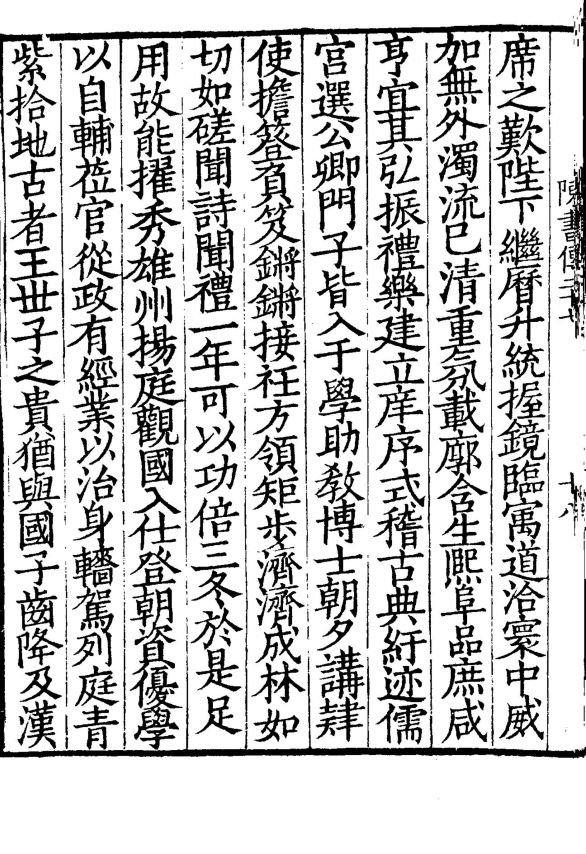 陳書傳二十七
十八
席之歎陛下繼曆升統握鏡臨寓道洽寰中威
加無外濁流已清重氛載廓含生熈阜品庶咸
亨宜其弘振禮樂建立庠序式稽古典紆迹儒
宫選公卿門子皆入于學助教博士朝夕講肄
使擔簦負笈鏘鏘接衽方領矩歩濟濟成林如
切如磋聞詩聞禮一年可以功倍三冬於是足
用故能擢秀雄州揚庭觀國入仕登朝資優學
以自輔莅官從政有經業以治身轖駕列庭青
紫拾地古者王世子之貴猶與國子齒降及漢